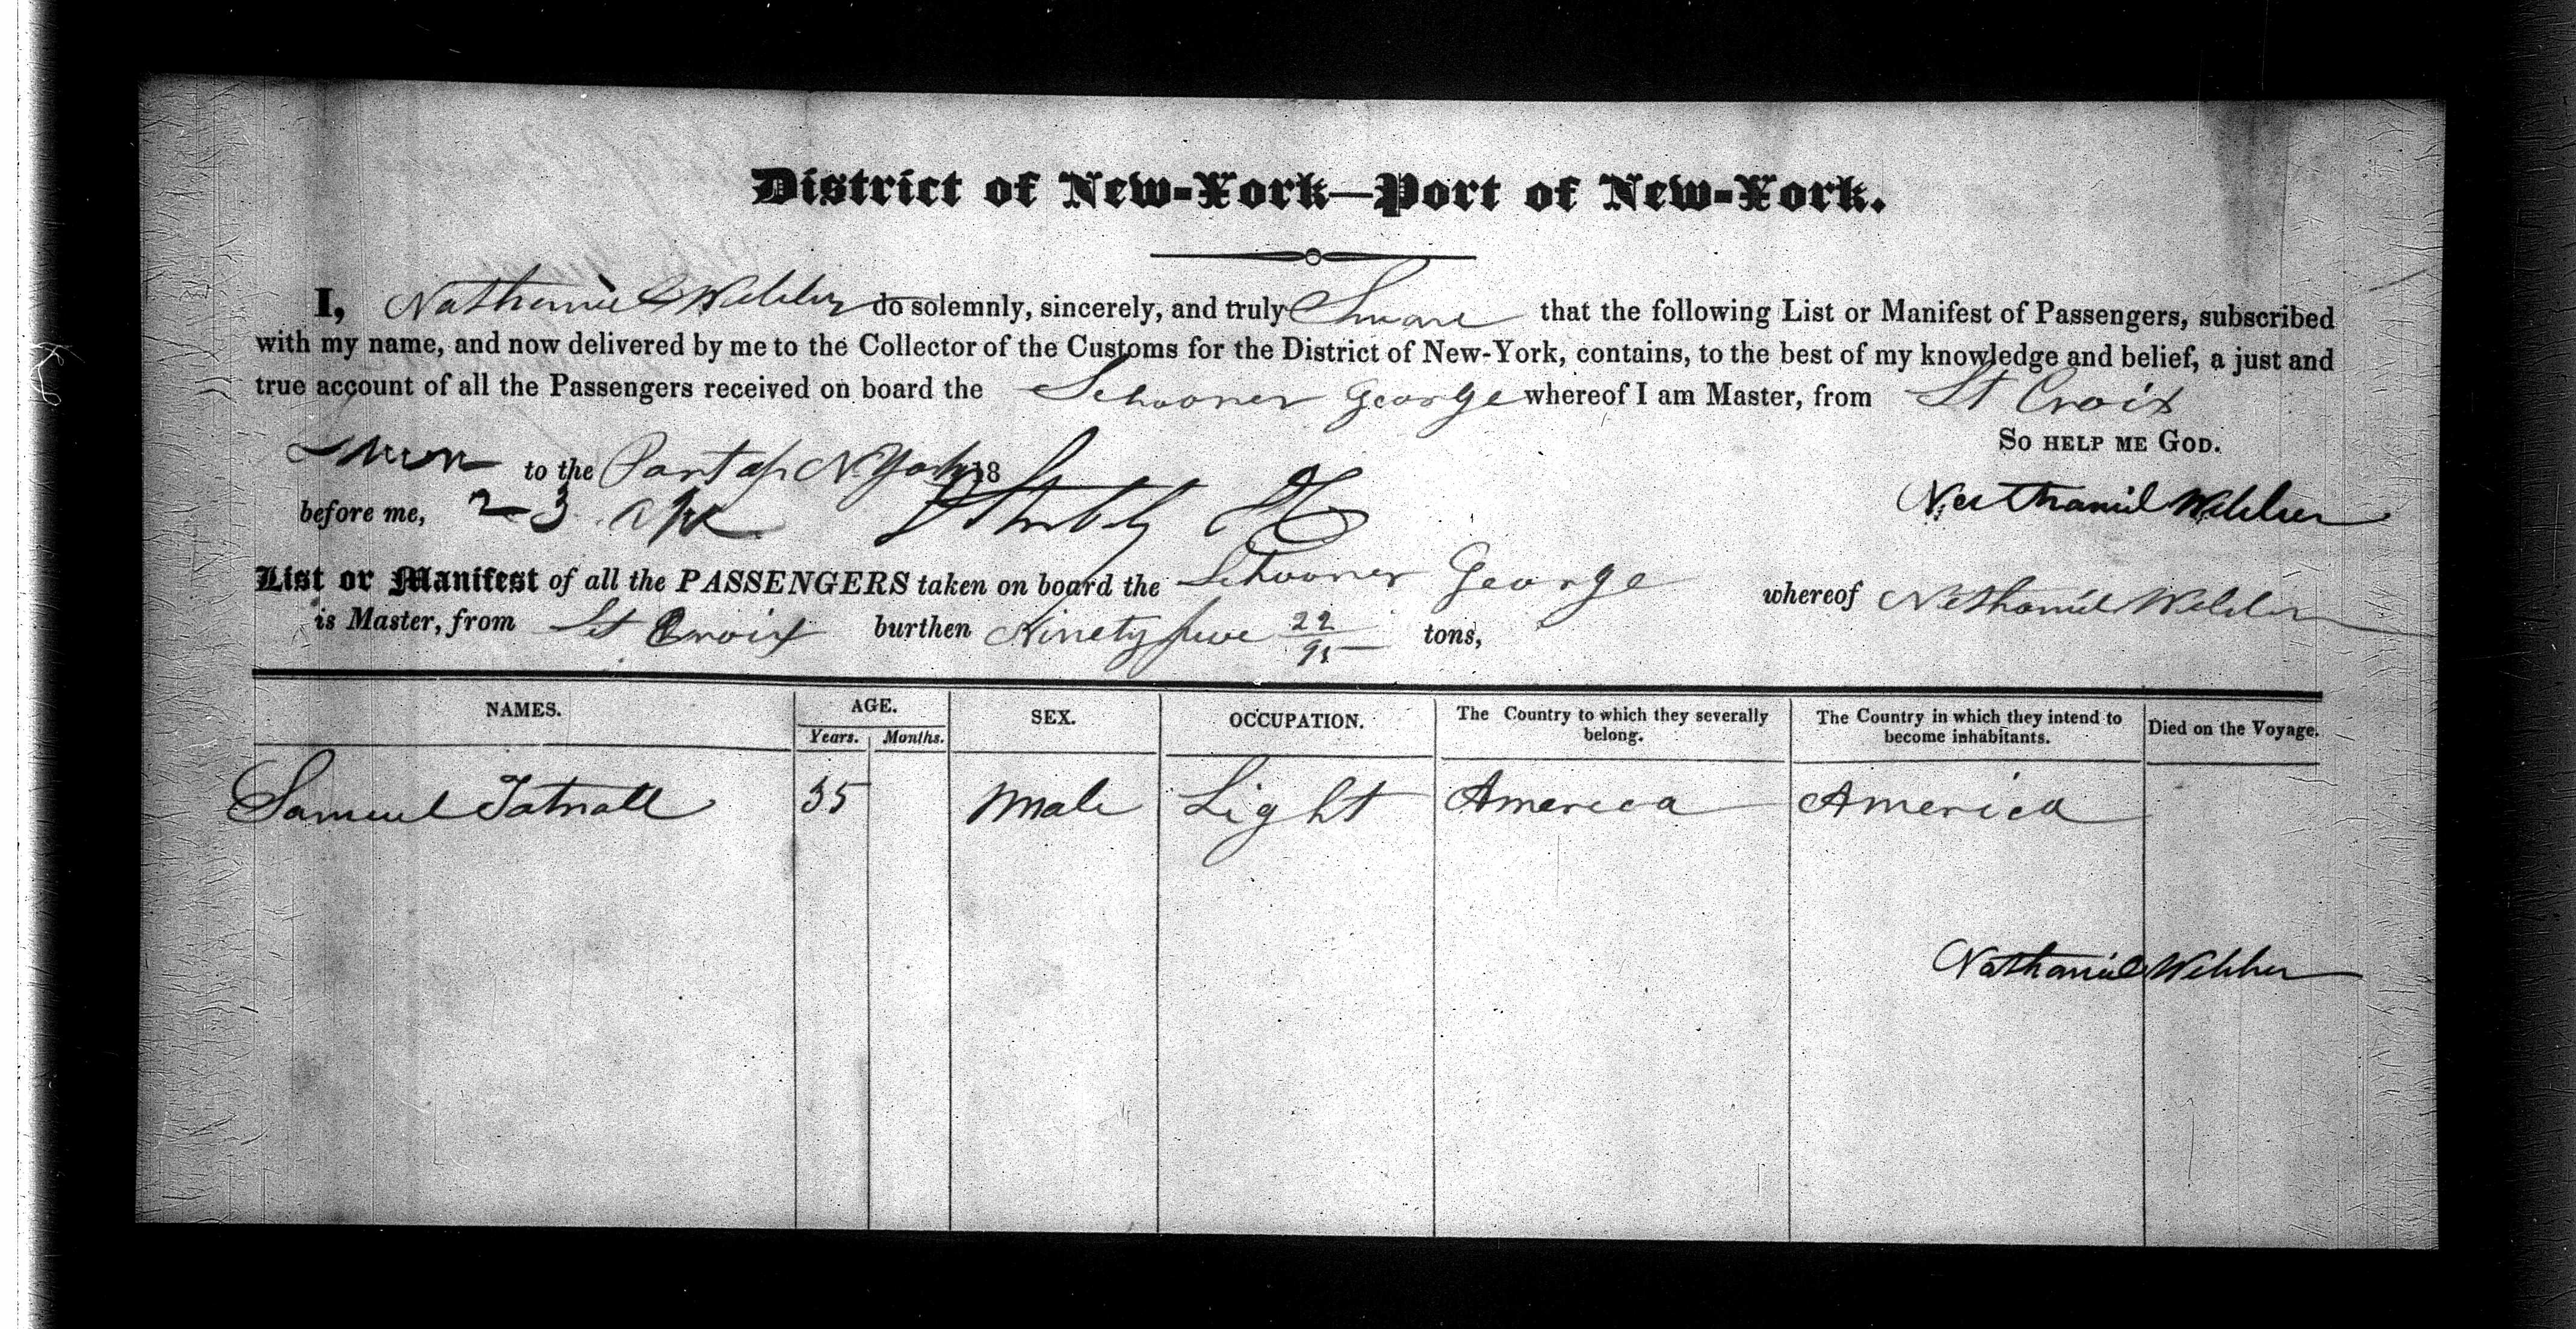 District of New-York—Port of New-York.
I, Nathaniel Webber do solemnly, sincerely, and truly Swear that the following List or Manifest of Passengers, subscribed
with my name, and now delivered by me to the Collector of the Customs for the District of New-York, contains, to the best of my knowledge and belief, a just and
true account of all the Passengers received on board the Schooner George whereof I am Master, from St Croix
SO HELP ME GOD.
Sworn to the Port of N. York 18
before me, 23 Nathaniel Webber
List or Manifest of all the PASSENGERS taken on board the Schooner George whereof Nathaniel Webber
is Master, from St Croix burthen Ninety five 22/95 tons,
NAMES. AGE. SEX. OCCUPATION. The Country to which they severally belong. The Country in which they intend to become inhabitants. Died on the Voyage.
Years. Months.
Samuel Tatnall 35 Male Light America America
Nathaniel Webber